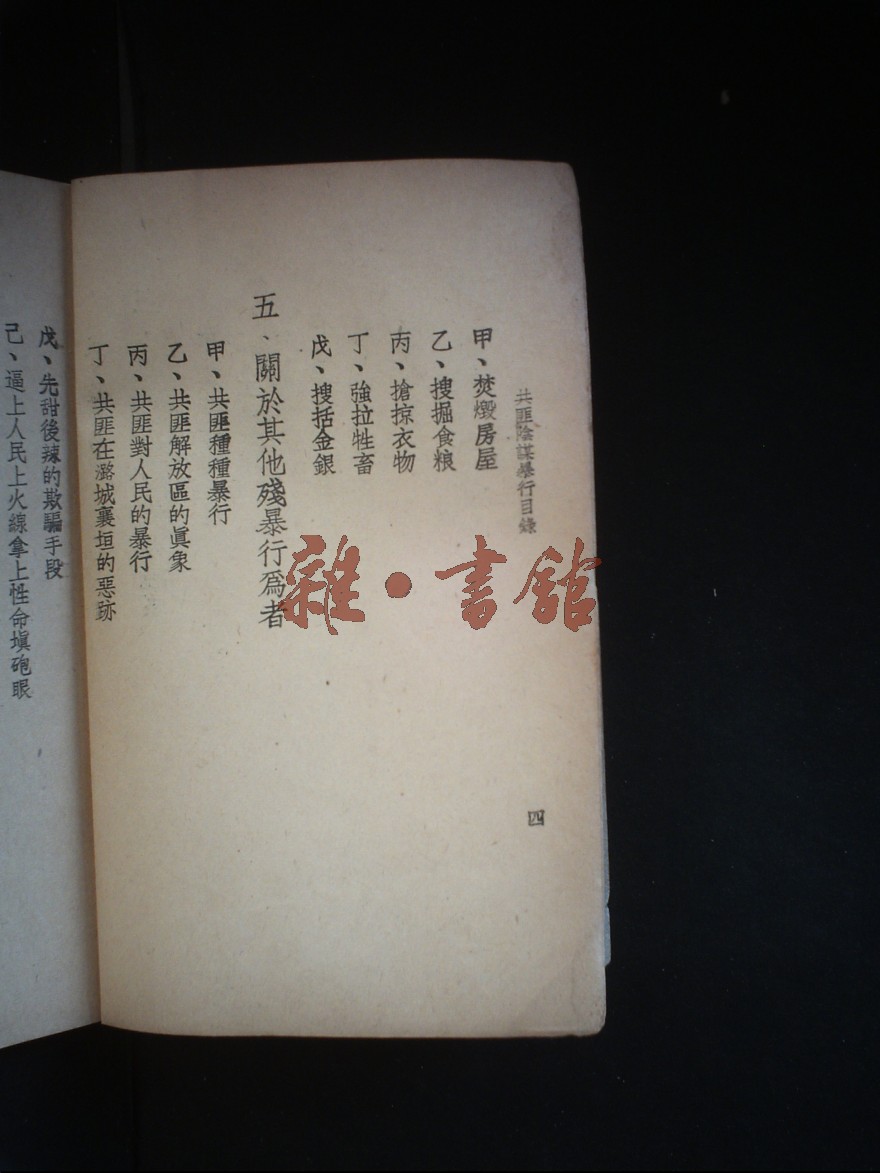 共匪陰謀暴行目錄
甲、焚燬房屋
乙、搜掘食粮
丙、搶掠衣物
丁、強拉牲畜
戊、搜括金銀
五、關於其他殘暴行爲者
甲、共匪種種暴行
乙、共匪解放區的眞象
丙、共匪對人民的暴行
丁、共匪在潞城襄垣的惡跡
四
戊、先甜後辣的欺騙手段
己、逼上人民上火線拿上性命塡砲眼
雜·書館